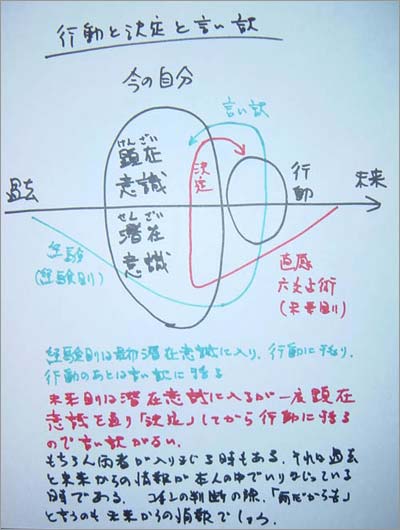 行動と決定と言い訳
今の自分
言い訳
けんざい
顕在
意識
決定
行動
過去
未来
せんざい
潜在
意識
経験
(経験則)
直感
六爻占術
(未来則)
経験則は最初潜在意識に入り、行動に移り、
行動のあとは言い訳に移る
未来則は潜在意識に入るが一度顕在
意識を通り「決定」してから行動に移る
ので言い訳がない.
もちろん両者が入りまじる時もある. それは過去
と未来からの情報が本人の中でいりまじっている
時である. コインの判断の際、「雨だから吉」
と言うのも未来からの情報でしょう.